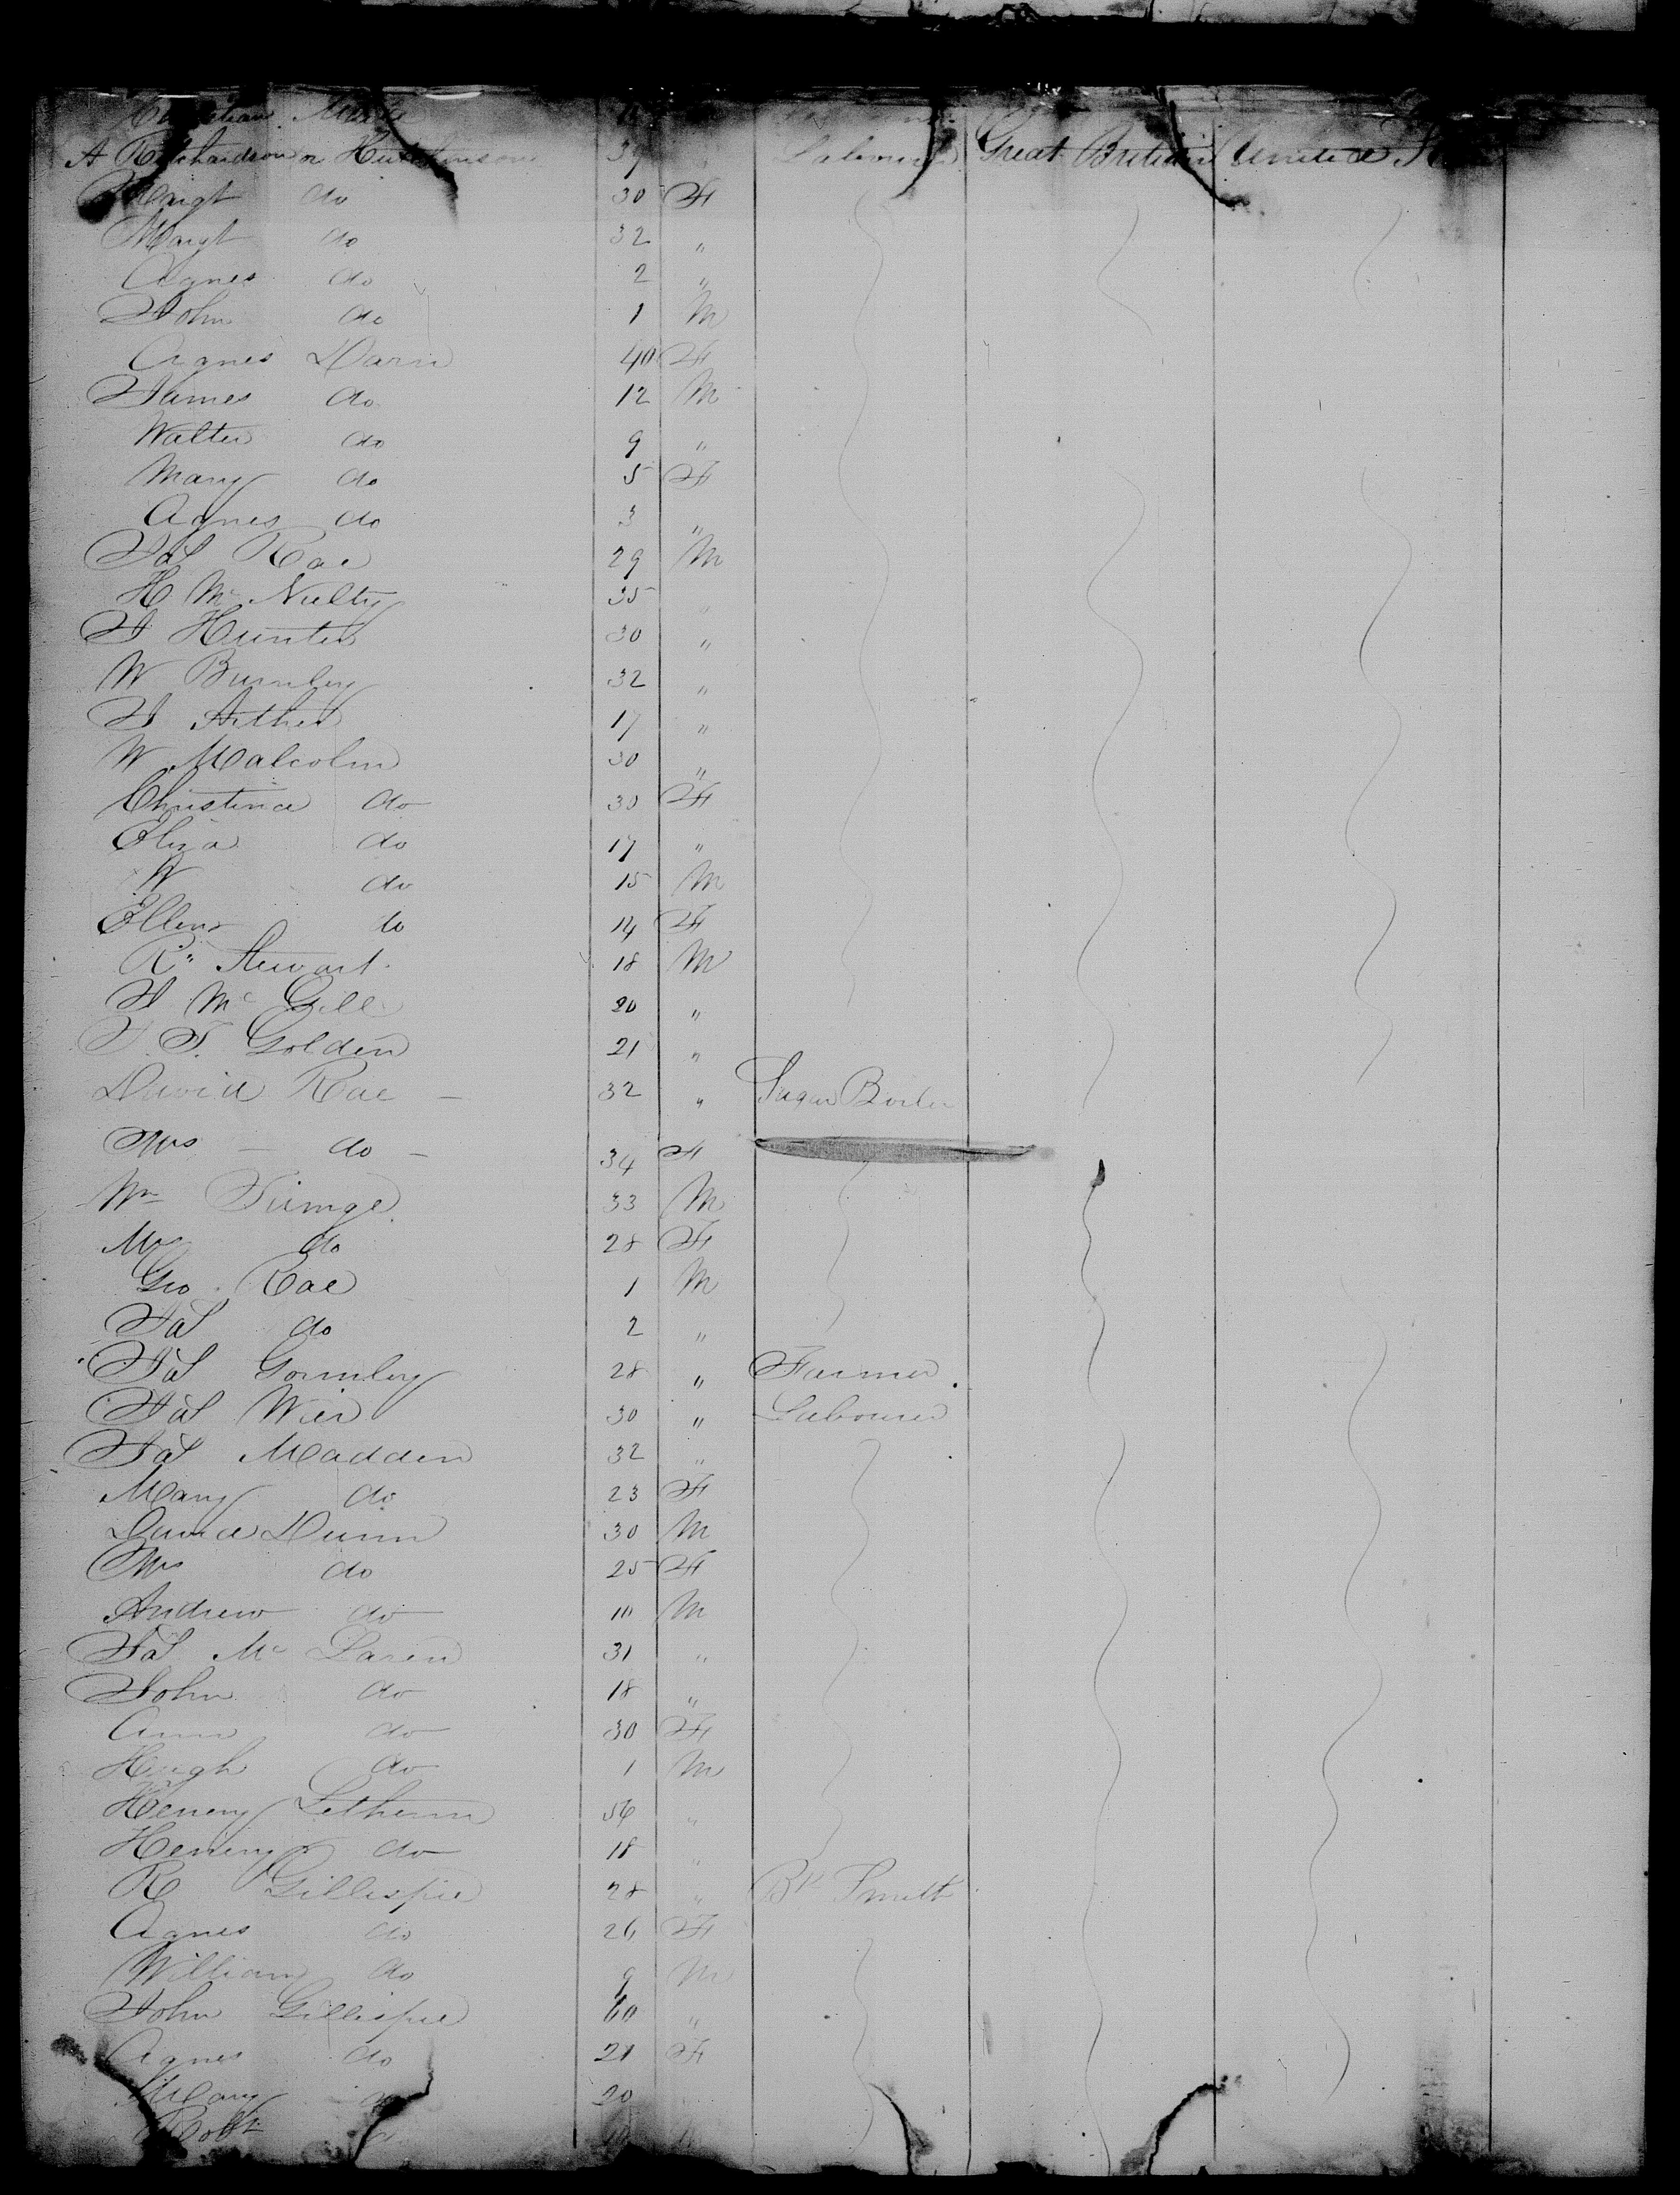 A Richardson or Hutchinson 37 Labourer Great Britian United
Margt do 30 F
Margt do 32 "
Agnes do 2 "
John do 1 M
Agnes Darn 40 F
James do 12 M
Walter do 9 "
Mary do 5 F
Agnes do 3 "
Jas Rae 29 M
H. Mc Nulty 35 "
J Hunter 30 "
W Burnley 32 "
J Arther 17 "
W Malcolm 30 "
Christina do 30 F
Eliza do 17 "
W do 15 M
Ellen do 14 F
R" Stewart 18 M
J Mc Gill 20 "
J. T. Golden 21 "
David Rae - 32 " Sugar Boiler
Mrs - do - 34 F
Wm 33 M
Mrs do 28 F
Geo. Rae 1 M
Jas do 2 "
Jas Gormley 28 " Farmer
Jas Wier 30 " Labourer
Jas Madden 32 "
Mary do 23 F
David Dunn 30 M
Mrs do 25 F
Andrew do 10 M
Jas Mc Laren 31 "
John do 18 "
Ann do 30 F
Hugh do 1 M
Henery 56 "
Henery do 18 "
R Gillispie 28 " Bk Smith
Agnes do 26 F
William do 9 M
John Gillispie 60 "
Agnes do 21 F
Mary 20
Robt